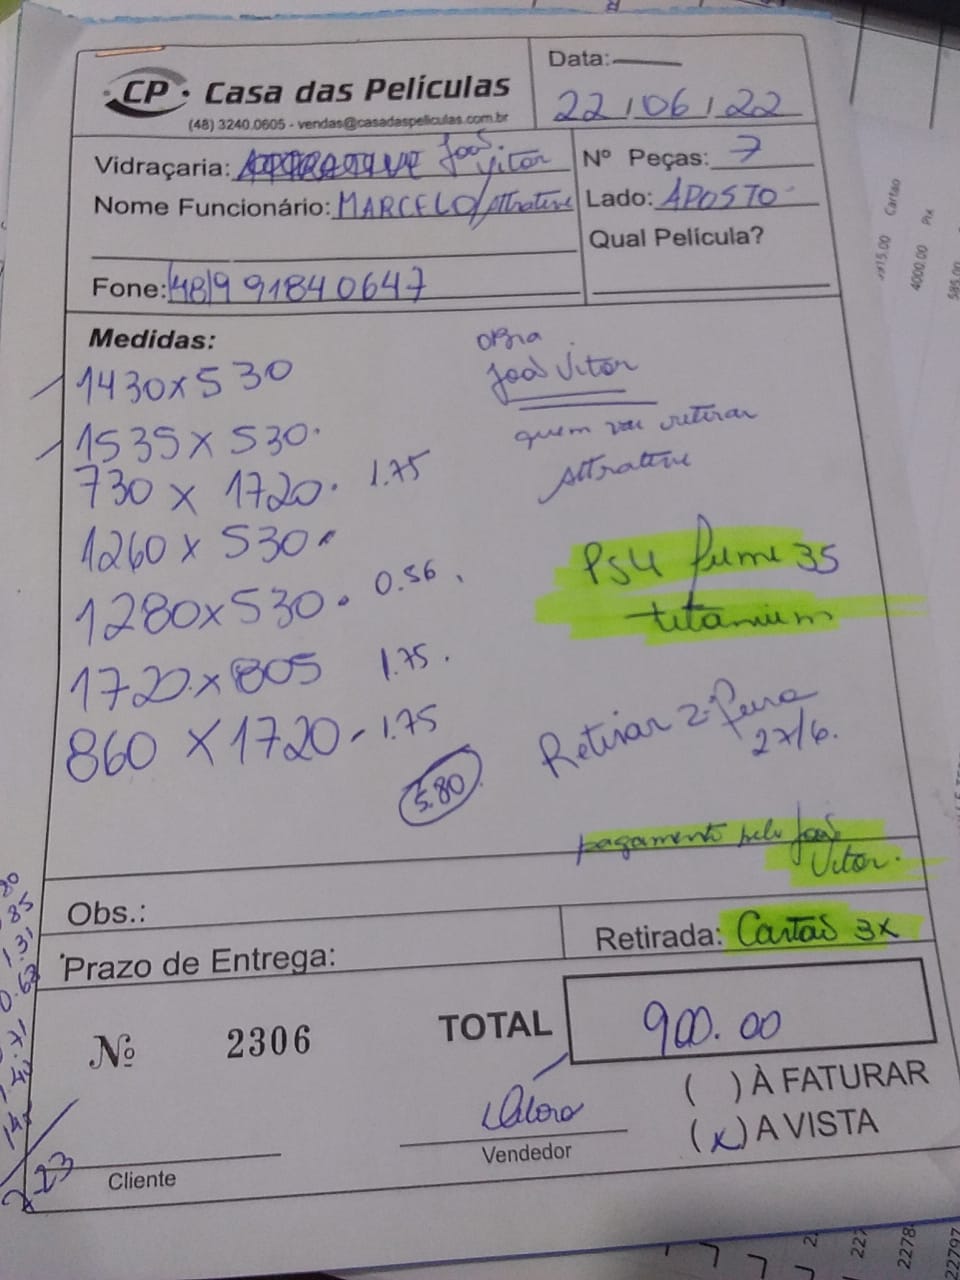 CP Casa das Películas
(48) 3240.0605 - vendas@casadaspeliculas.com.br
Data:
22/06/22
Vidraçaria: João Vitor
Nº Peças: 7
Nome Funcionário: MARCELO/Attrative
Lado: APOSTO
Qual Película?
Fone: (48)991840647
Medidas:
obra
João Vitor
1430x530
1535x530.
quem vai retirar
Attrative
730 x 1720. 1.75
1260 x 530
PS4 fume 35
titanium
1280x530. 0.56
1720x805 1.75.
860 x 1720 - 1.75
Retirar 2-feira
27/6.
5.80
pagamento pelo João
Vitor.
Obs.:
Retirada: Cartão 3x
Prazo de Entrega:
Nº 2306
TOTAL 900.00
( ) À FATURAR
(x) A VISTA
Vendedor
Cliente
85
1.31
223
Cartao
4000.00 Pix
585.00
2278
22797